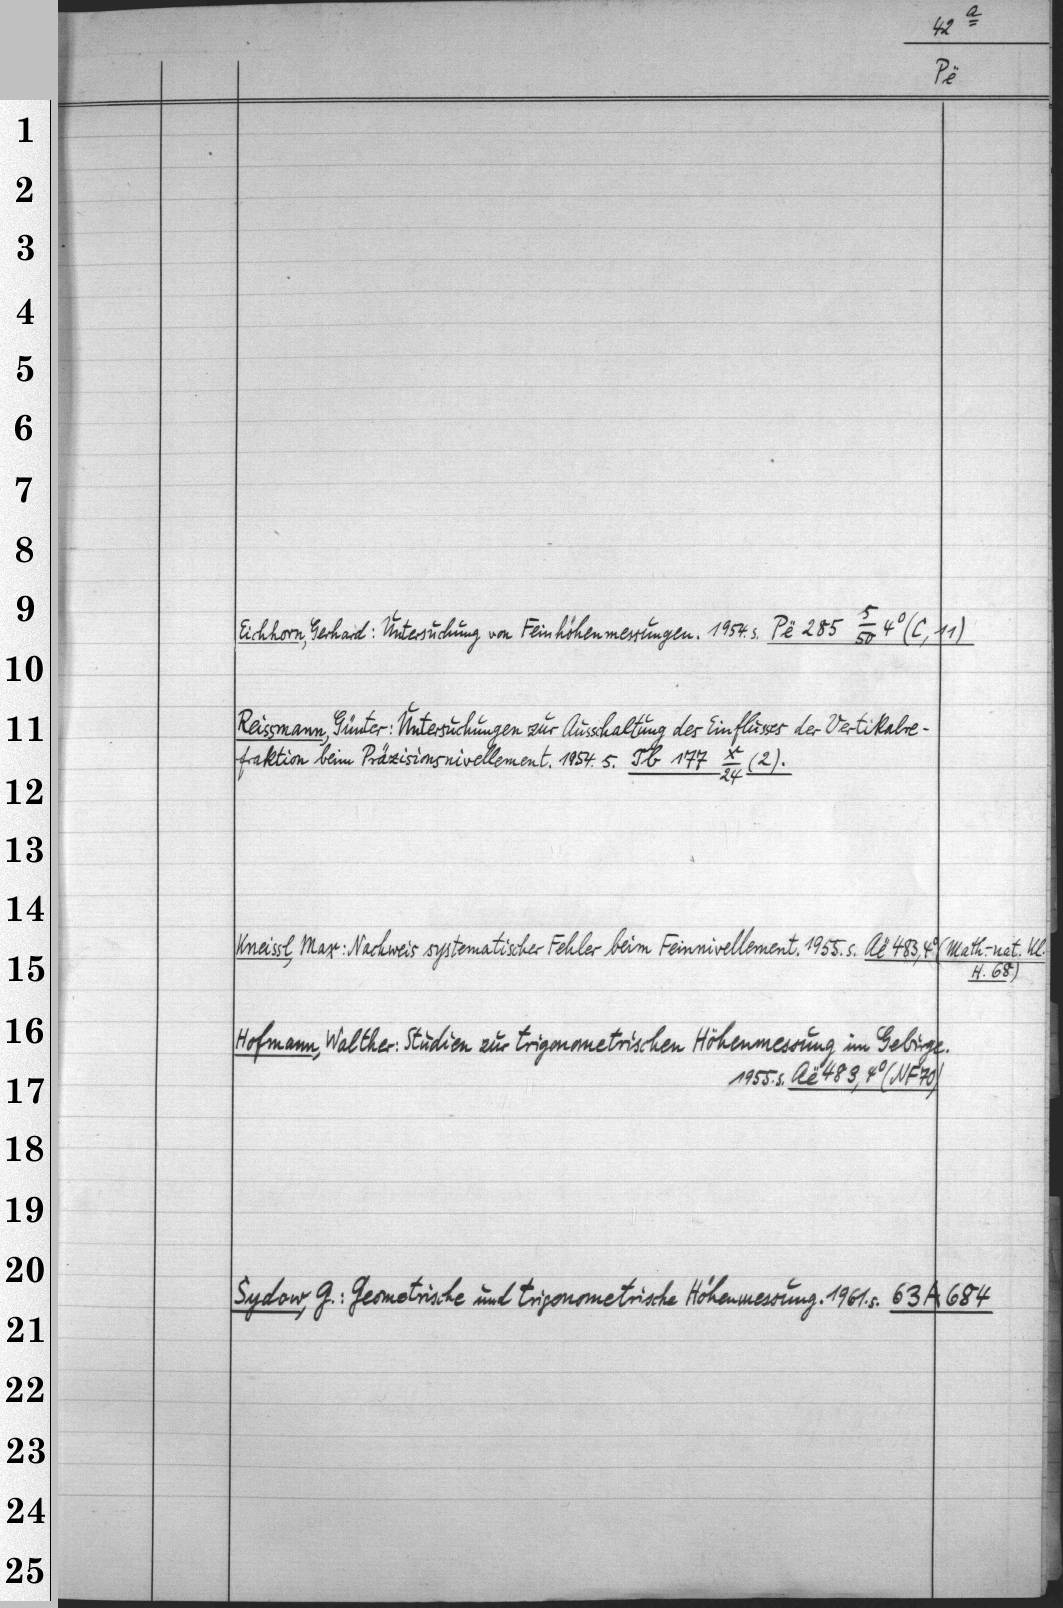 42 a
Pë
1
2
3
4
5
6
7
8
9
Eichhorn, Gerhard: Untersuchung von Feinhöhenmessungen. 1954. s. Pë 285 5/50 4° (C, 11)
10
11
Reissmann, Günter: Untersuchungen zur Ausschaltung des Einflusses der Vertikalre-
fraktion beim Präzisionsnivellement. 1954. s. Tb 177 x/24 (2).
12
13
14
Kneissl, Max: Nachweis systematischer Fehler beim Feinnivellement. 1955. s. Aë 483, 4° (Math.-nat. Kl.
H. 68)
15
16
Hofmann, Walther: Studien zur trigonometrischen Höhenmessung im Gebirge.
1955. s. Aë 483, 4° (NF 70)
17
18
19
20
Sydow, G.: Geometrische und trigonometrische Höhenmessung. 1961. s. 63 A 684
21
22
23
24
25